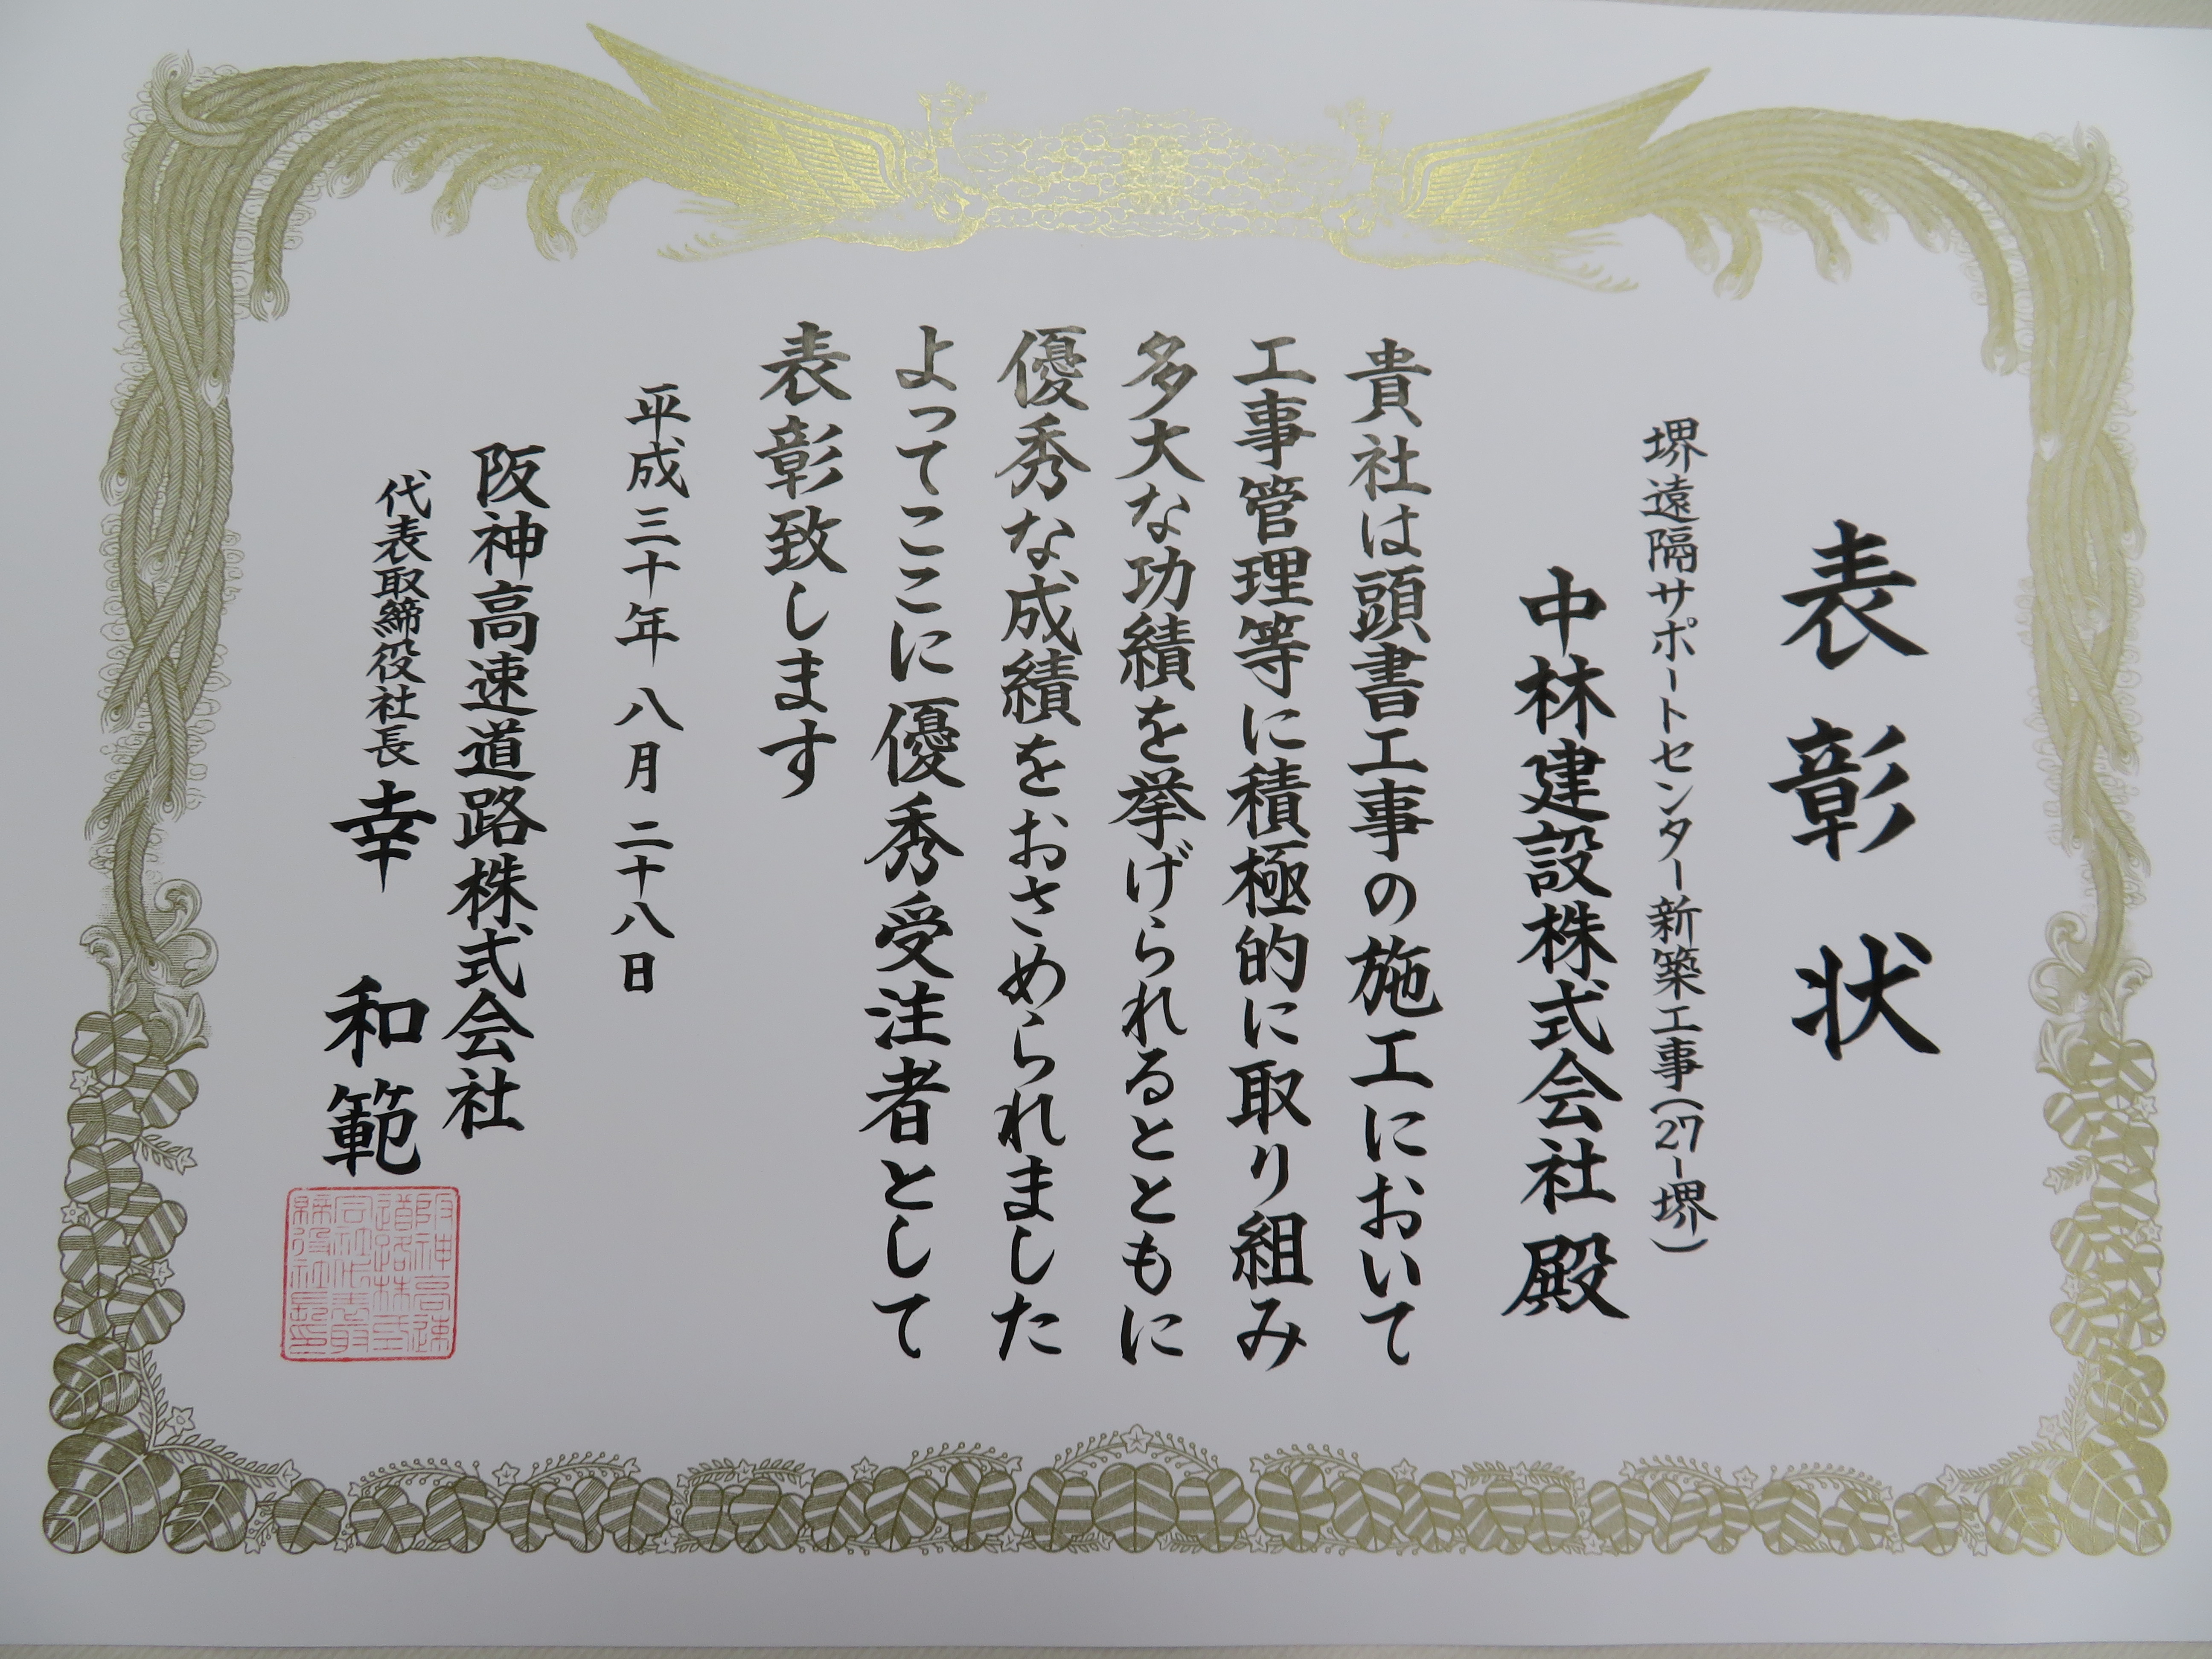 表彰状
堺遠隔サポートセンター新築工事(27-堺)
中林建設株式会社 殿
貴社は頭書工事の施工において
工事管理等に積極的に取り組み
多大な功績を挙げられるとともに
優秀な成績をおさめられました
よってここに優秀受注者として
表彰致します
平成三十年八月二十八日
阪神高速道路株式会社
代表取締役社長 幸 和範